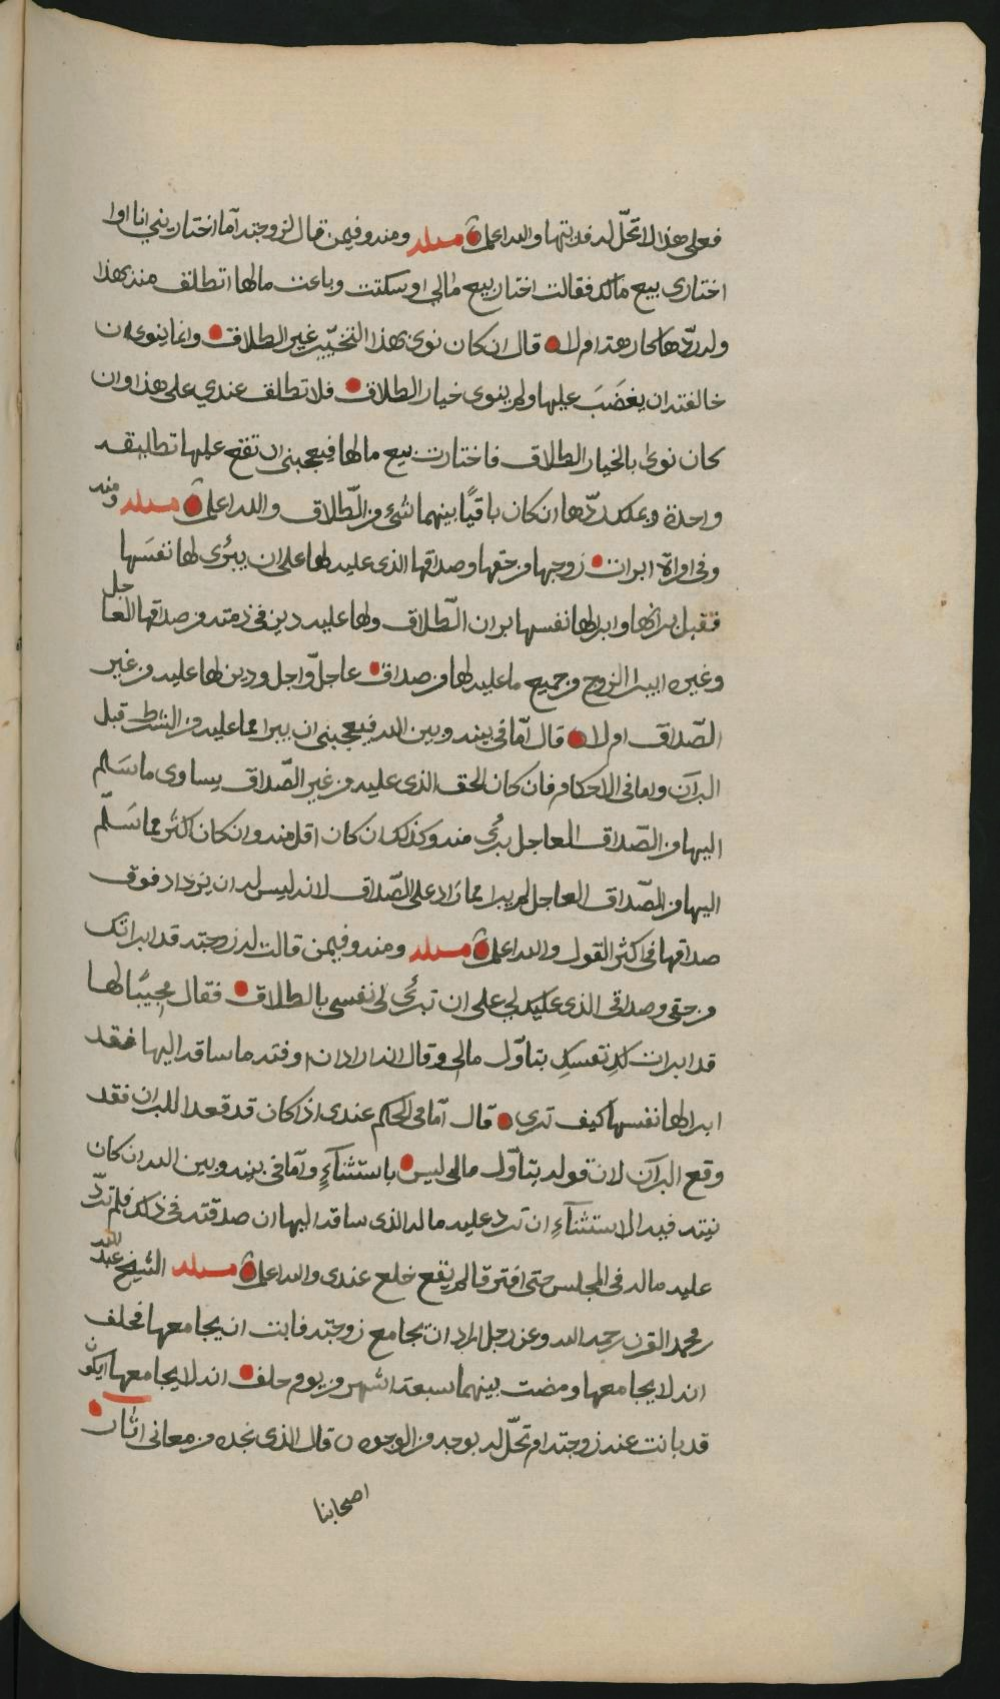 فعلى هذا لا تحلّ له فديتها والله اعلم مسئلة ومنه وفيمن قال لزوجته اما اختاريني انا او
اختاري بيع مالك فقالت اختار بيع مالي او سكتت وباعت مالها اتطلق منه بهذا
وله ردّها كارهة ام لا قال ان كان نوى بهذا التخيّير غير الطلاق وانما ينوى ان
خالفته ان يغضَبَ عليها ولم ينوى خيار الطلاق فلا تطلق عندي على هذا وان
كان نوى بالخيار الطلاق فاختارت بيع مالها فيعجبنى ان تقع عليها تطليقه
واحدة ويملك ردّها ان كان باقيًا بينهما شئ من الطّلاق والله اعلم مسئلة ومنه
وفي امراة ابرات زوجها من حقها وصداقها الذى عليه لها على ان يبرُى لها نفسَها
فقبل برانها وابرا لها نفسها بران الطّلاق ولها عليه دين في ذمته من صداقها العاجل
وغيره ايبرا الزوج من جميع ما عليه لها من صداق عاجل وّاجل ودين لها عليه من غير
الصّداق ام لا قال امّا في بينه وبين الله فيعجبنى ان يبرا مما عليه من الشرط قبل
البرآن واما في الاحكام فان كان الحق الذى عليه من غير الصّداق يساوى ما سَلم
اليها من الصّداق العاجل برُى منه وكذلك ان كان اقل منه وان كان اكثر مما سَلّم
اليها من الصّداق العاجل لم يبرا مما زاد على الصّداق لانه ليس له ان يزداد فوق
صداقها في اكثر القول والله اعلم مسئلة ومنه وفيمن قالت له زوجته قد ابراتك
من حقي وصداقي الذى عليك لي على ان تبرُى لى نفسي بالطلاق فقال مجيبًا لها
قد ابرات لكِ نفسكِ بتاوّل مالي وقال انه اراد ان اوفته ما ساقه اليها فقد
ابرا لها نفسها كيف ترى قال امّا في الحكم عندى اذا كان قد قعدا للبران فقد
وقع البرآن لان قوله بتاوّل مالي ليس باستثنآءٍ وامّا في بينه وبين الله ان كان
نيته فيه الاستثنآء ان ترد عليه ماله الذى ساقه اليها ان صدقته في ذلك فلم تردّ
عليه ماله في المجلس حتى افترقا لم يقع خلع عندى والله اعلم مسئلة الشيخ عبدالله
بن محمد القرن رحمه الله وعن رجل اراد ان يجامع زوجته فابت ان يجامعها فحلف
انه لا يجامعها ومضت بينهما سبعة اشهر من يوم حلف انه لا يجامعها ايكون
قد بانت عنه زوجته ام تحلّ له بوجه من الوجوه قال الذى نجده من معانى اثار
اصحابنا